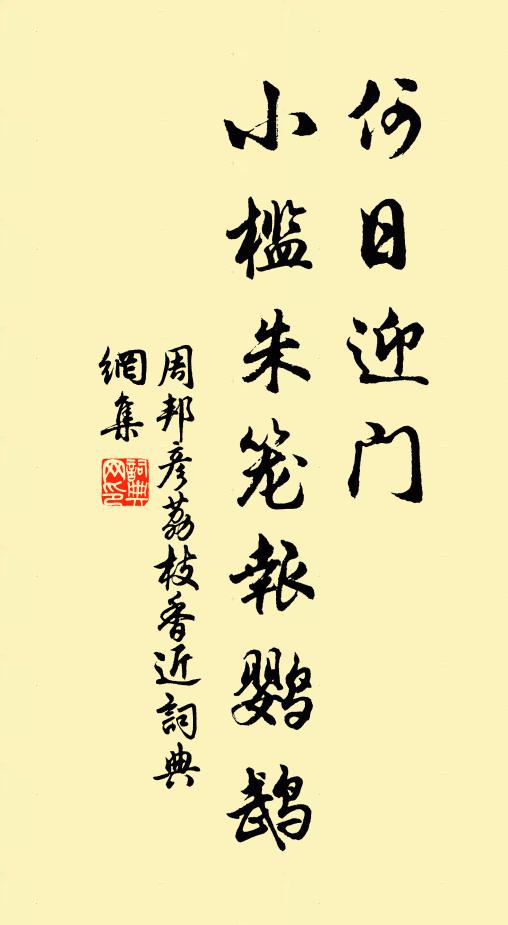 何日迎门
小槛朱笼報鹦鹉
周邦彦荔枝香近詞典
網集
詞典
网印